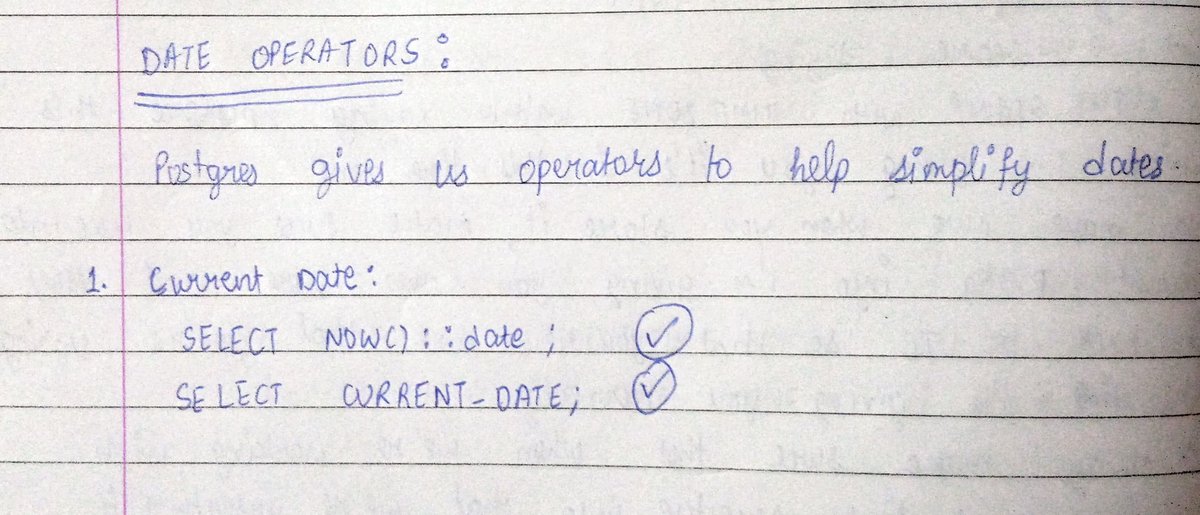 DATE OPERATORS:
Postgres gives us operators to help simplify dates.
1. Current Date:
SELECT NOW()::date;
SELECT CURRENT_DATE;